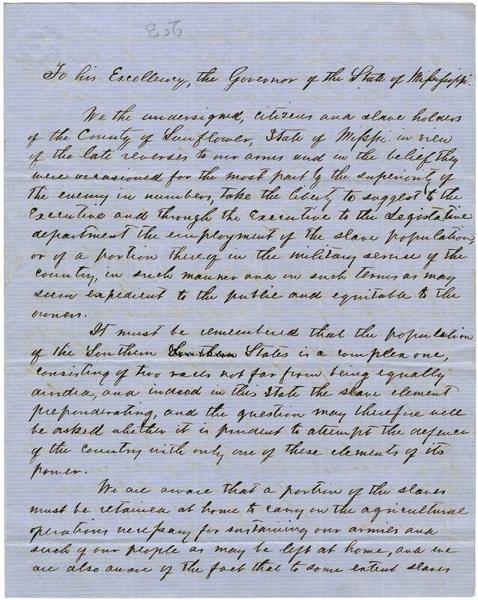 356
To his Excellency, the Governor of the State of Mississippi.
We the undersigned, citizens and slave holders
of the County of Sunflower, State of Missppi. in view
of the late reverses to our arms and in the belief they
were occasioned for the most part by the superiority of
the enemy in numbers, take the liberty to suggest to the
Executive and through the Executive to the Legislative
department the employment of the slave population,
or of a portion thereof in the military service of the
country, in such manner and on such terms as may
seem expedient to the public and equitable to the
owners.
It must be remembered that the population
of the Southern Southern States is a complex one,
consisting of two races not far from being equally
divided, and indeed in this State the slave element
preponderating, and the question may therefore well
be asked whether it is prudent to attempt the defence
of the country with only one of these elements of its
power.
We are aware that a portion of the slaves
must be retained at home to carry on the agricultural
operations necessary for sustaining our armies and
such of our people as may be left at home, and we
are also aware of the fact that to some extent slaves